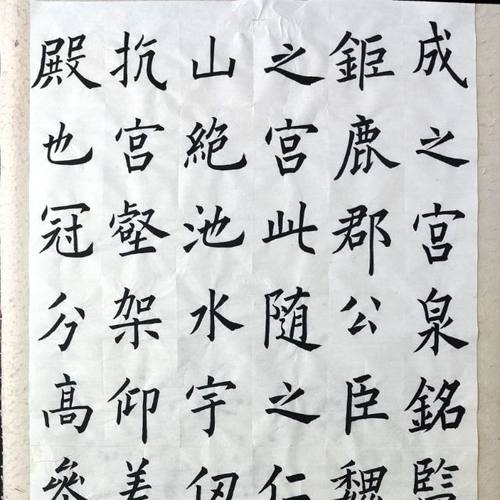 成之宮泉銘監
鉅鹿郡公臣魏
之宮此随之仁
山絕池水宇
抗宮壑架仰差
殿也冠分高參